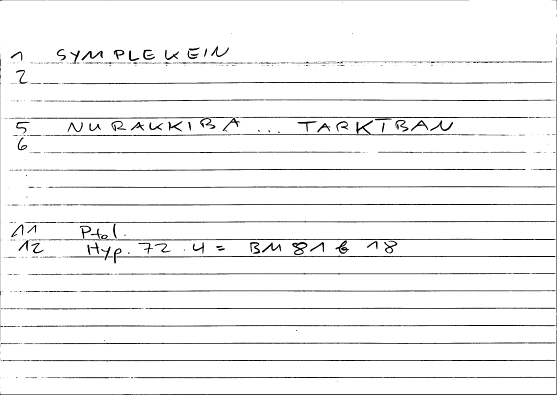 1 SYMPLEKEIN
2
5 NURAKKIBA ... TARKTBAN
6
11 Ptol.
12 Hyp. 72.4 = BM 81 b 18